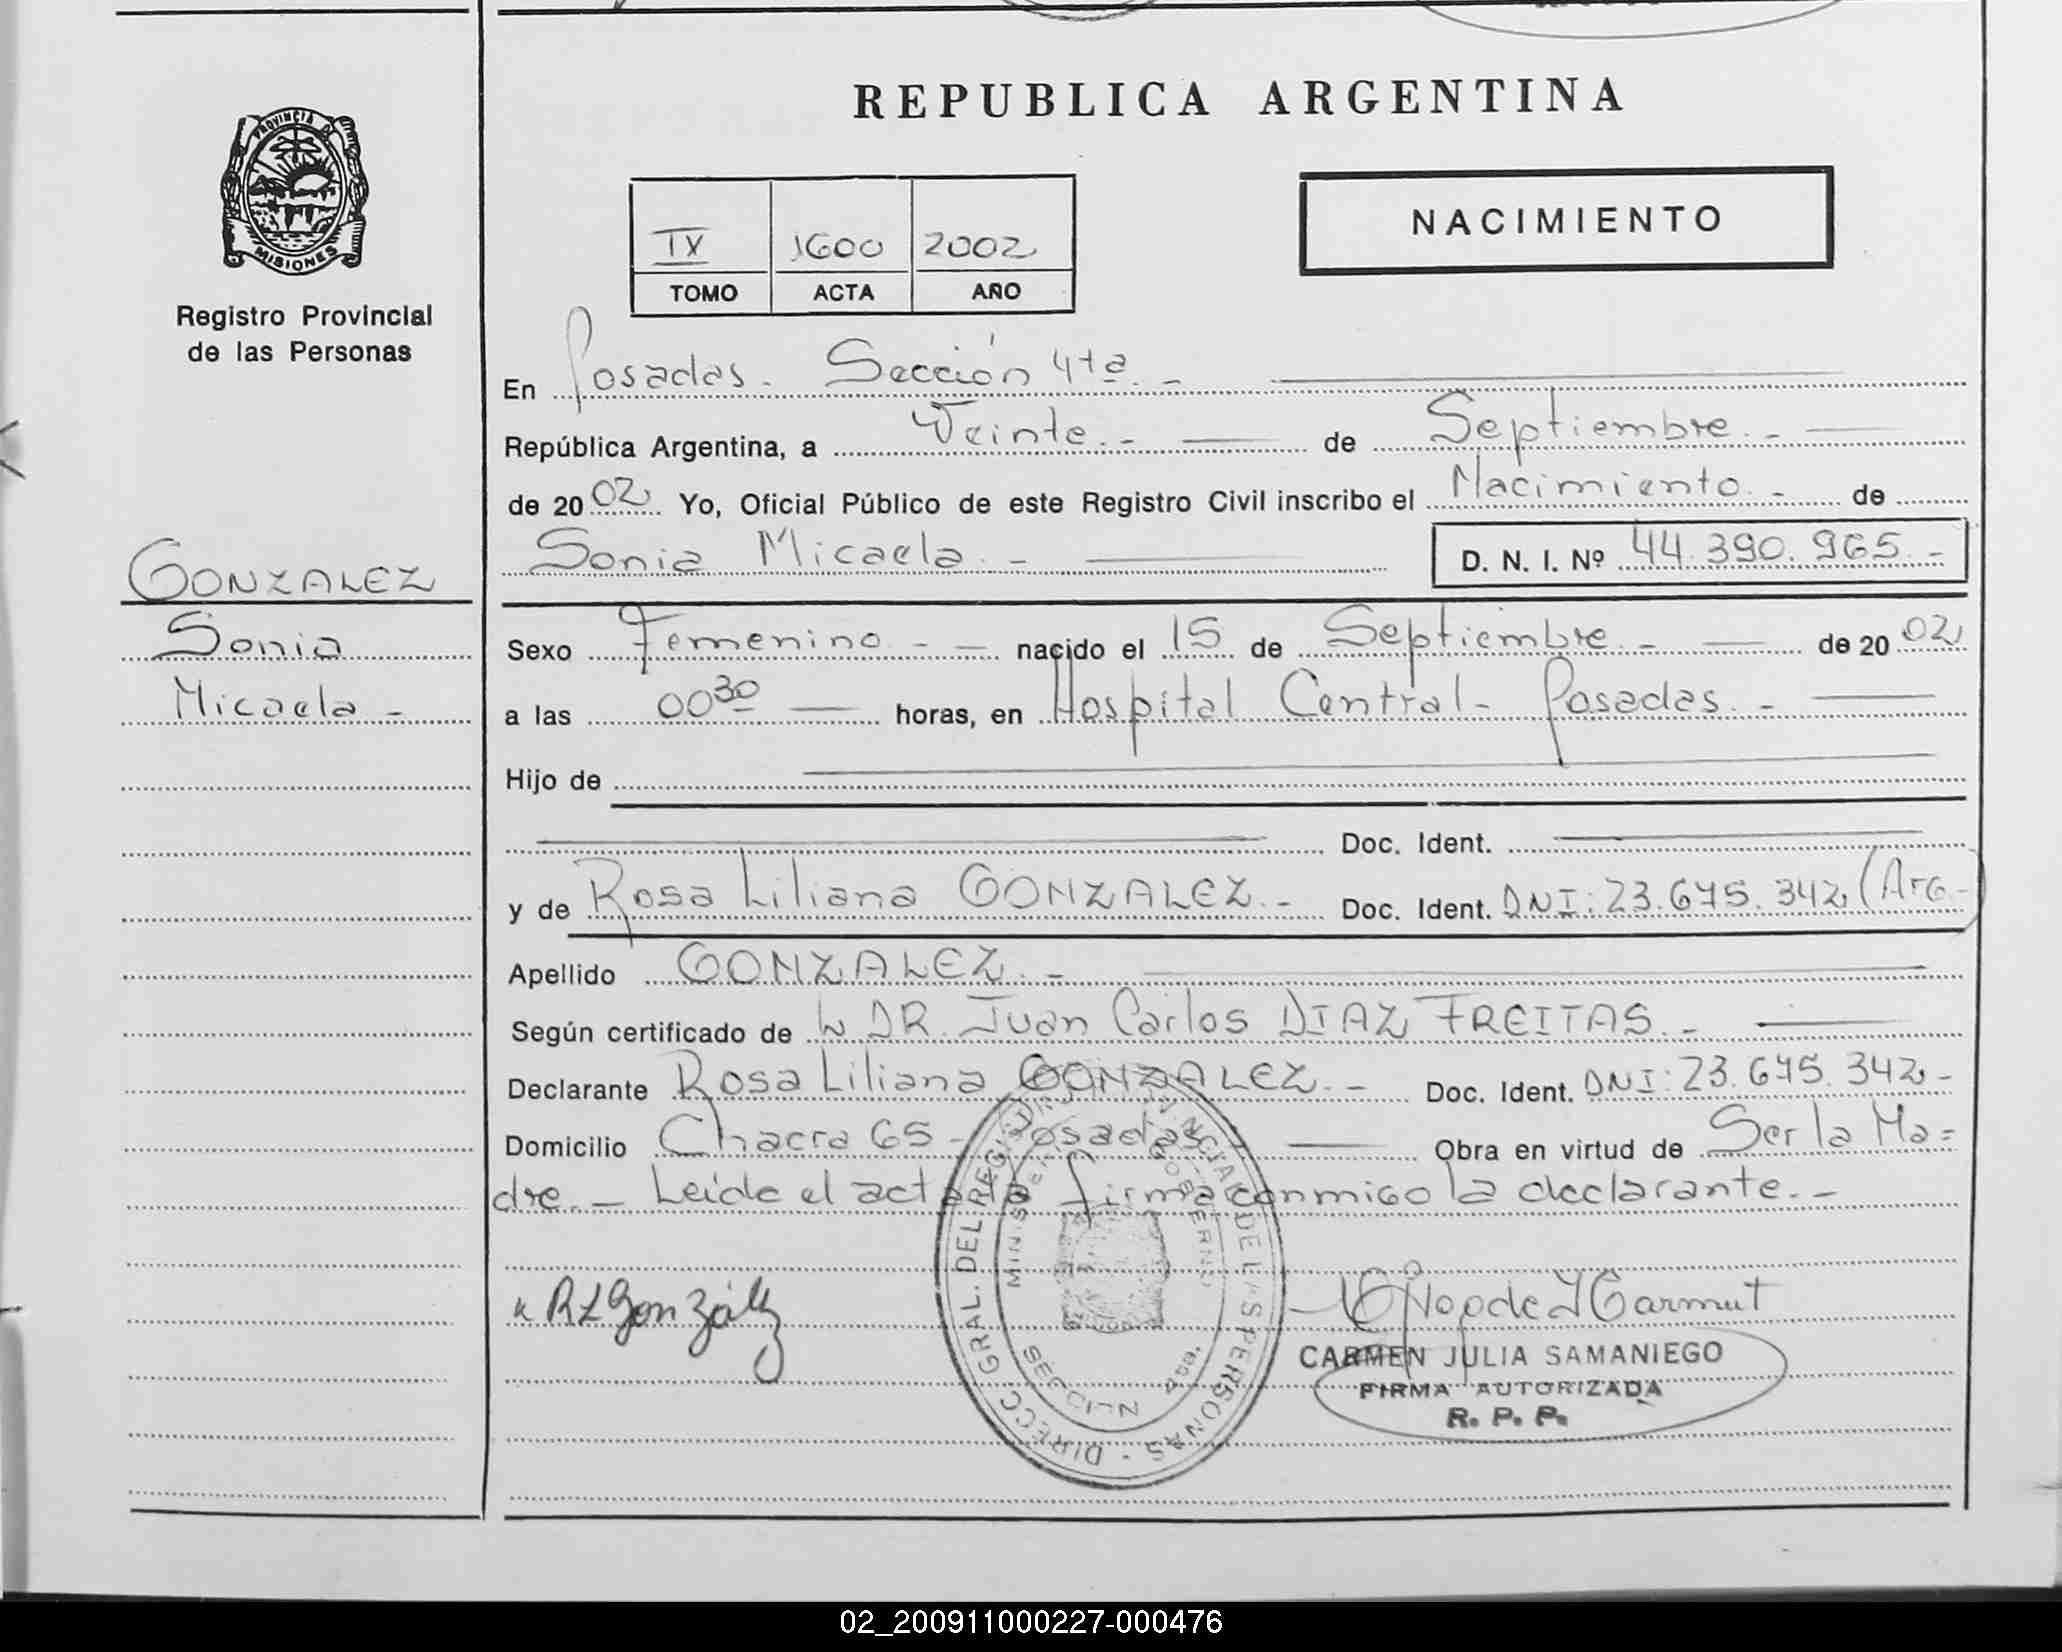 REPUBLICA ARGENTINA
PROVINCIA DE
MISIONES
Registro Provincial
de las Personas
NACIMIENTO
IX 1600 2002
TOMO ACTA AÑO
En Posadas. Sección 4ta. -
República Argentina, a Veinte. - de Septiembre. -
de 2002 Yo, Oficial Público de este Registro Civil inscribo el Nacimiento. - de
Sonia Micaela. - D. N. I. Nº 44.390.965. -
GONZALEZ
Sonia
Micaela -
Sexo Femenino. - nacido el 15 de Septiembre. - de 2002
a las 00 30 horas, en Hospital Central - Posadas. -
Hijo de
Doc. Ident.
y de Rosa Liliana GONZALEZ. - Doc. Ident. DNI: 23.675.342 (Arg.)
Apellido GONZALEZ. -
Según certificado de DR. Juan Carlos DIAZ FREITAS. -
Declarante Rosa Liliana GONZALEZ. - Doc. Ident. DNI: 23.675.342 -
Domicilio Chacra 65 - Posadas - Obra en virtud de Ser la Ma=
dre. - Leída el acta la firma conmigo la declarante. -
RLGonzález
DIRECC GRAL. DEL REGISTRO PROVINCIAL DE LAS PERSONAS
MINISTERIO GOBIERNO
SECCION 4ta.
CARMEN JULIA SAMANIEGO
FIRMA AUTORIZADA
R. P. P.
02_200911000227-000476